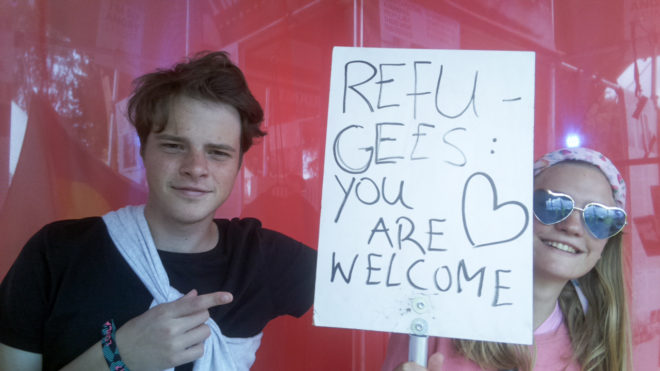 REFU-
GEES:
YOU
ARE
WELCOME